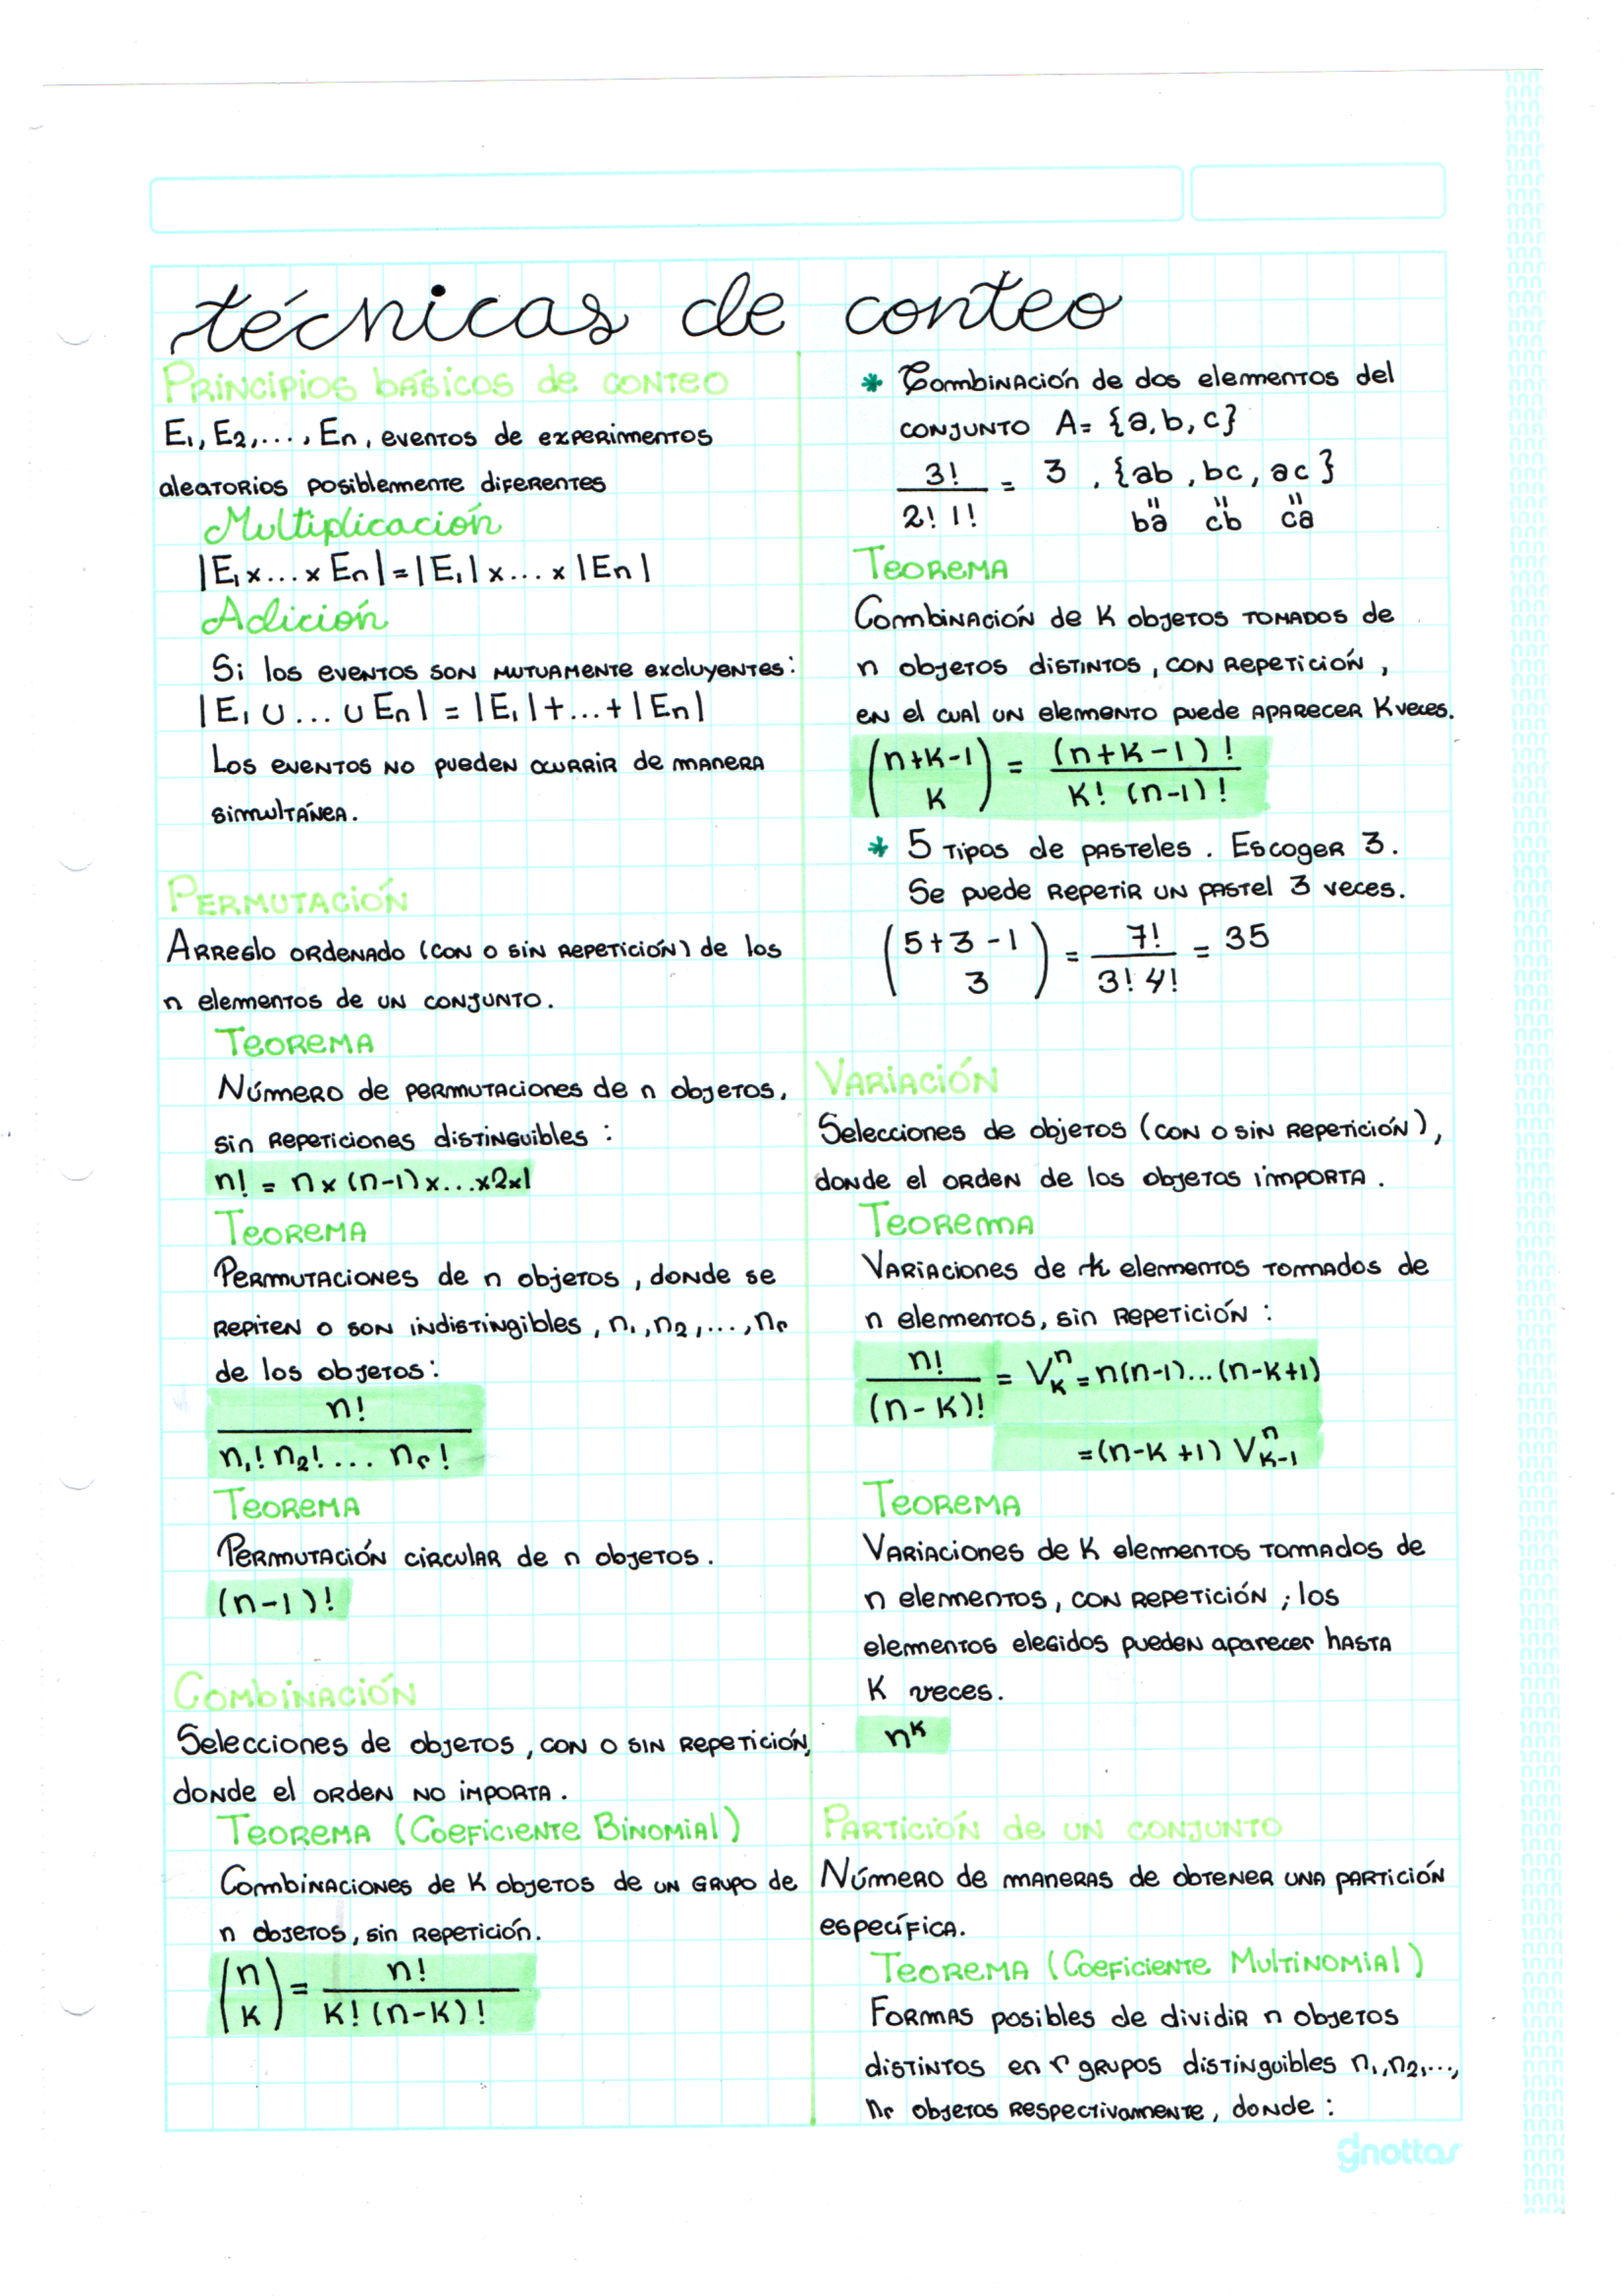 técnicas de conteo
Principios básicos de conteo
E₁, E₂, ..., En, eventos de experimentos
aleatorios posiblemente diferentes
Multiplicación
|E₁ x ... x En| = |E₁| x ... x |En|
Adición
Si los eventos son mutuamente excluyentes:
|E₁ ∪ ... ∪ En| = |E₁| + ... + |En|
Los eventos no pueden ocurrir de manera
simultánea.
Permutación
Arreglo ordenado (con o sin repetición) de los
n elementos de un conjunto.
Teorema
Número de permutaciones de n objetos,
sin repeticiones distinguibles:
n! = n x (n-1) x ... x 2 x 1
Teorema
Permutaciones de n objetos, donde se
repiten o son indistingibles, n₁, n₂, ..., nr
de los objetos:
n!
n₁! n₂! ... nr!
Teorema
Permutación circular de n objetos.
(n-1)!
Combinación
Selecciones de objetos, con o sin repetición,
donde el orden no importa.
Teorema (Coeficiente Binomial)
Combinaciones de K objetos de un grupo de
n objetos, sin repetición.
(n K) = n! / K! (n-K)!
* Combinación de dos elementos del
conjunto A = {a, b, c}
3! / 2! 1! = 3, {ab, bc, ac}
" " "
ba cb ca
Teorema
Combinación de K objetos tomados de
n objetos distintos, con repetición,
en el cual un elemento puede aparecer K veces.
(n+K-1 K) = (n+K-1)! / K! (n-1)!
* 5 tipos de pasteles. Escoger 3.
Se puede repetir un pastel 3 veces.
(5+3-1 3) = 7! / 3! 4! = 35
Variación
Selecciones de objetos (con o sin repetición),
donde el orden de los objetos importa.
Teorema
Variaciones de k elementos tomados de
n elementos, sin repetición:
n! / (n-K)! = V_K^n = n(n-1)...(n-K+1)
= (n-K+1) V_{K-1}^n
Teorema
Variaciones de K elementos tomados de
n elementos, con repetición; los
elementos elegidos pueden aparecer hasta
K veces.
n^K
Partición de un conjunto
Número de maneras de obtener una partición
específica.
Teorema (Coeficiente Multinomial)
Formas posibles de dividir n objetos
distintos en r grupos distinguibles n₁, n₂, ...,
nr objetos respectivamente, donde:
gnottas